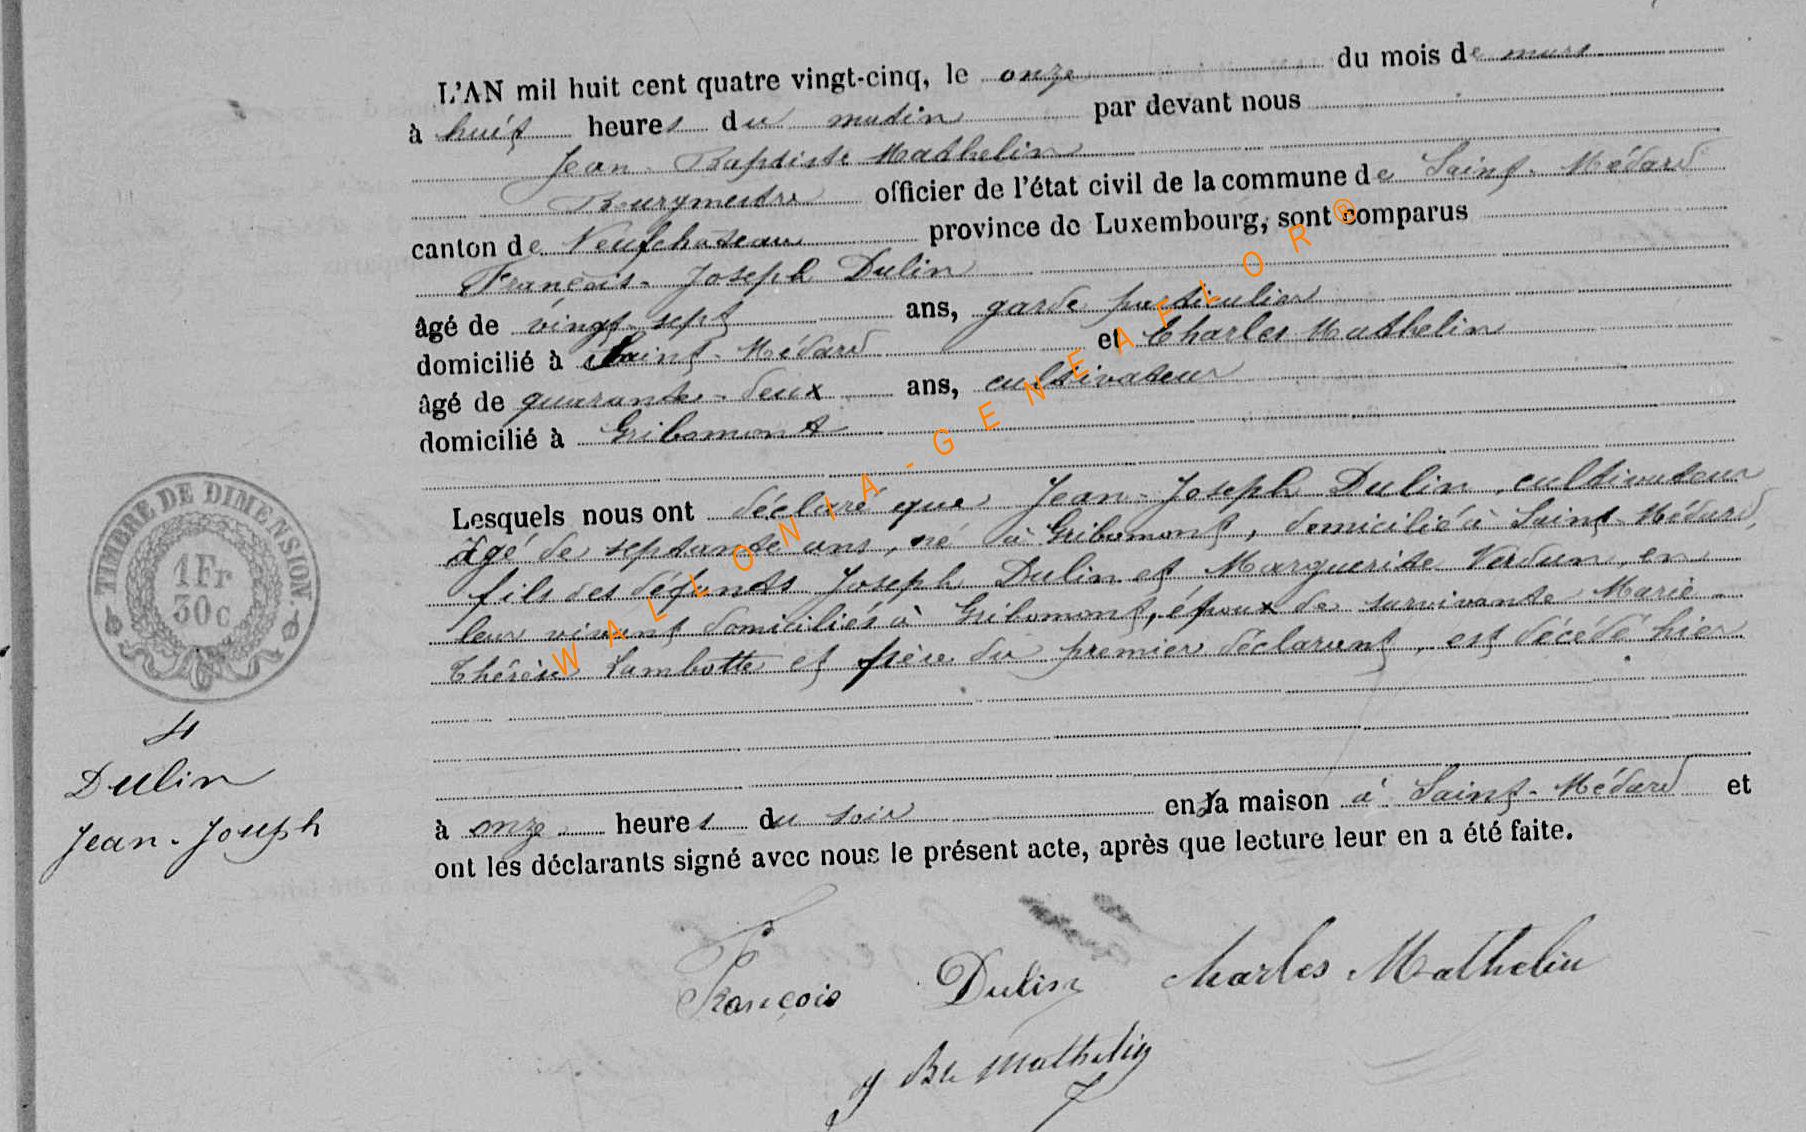 L'AN mil huit cent quatre vingt-cinq, le onze du mois de mars
à huit heures du matin par devant nous
Jean-Baptiste Mathelin
Burgmestre officier de l'état civil de la commune de Saint-Médard
canton de Neufchateau province de Luxembourg, sont comparus
François-Joseph Dulin
âgé de vingt-sept ans, garde particulier
domicilié à Saint-Médard et Charles Mathelin
âgé de quarante-deux ans, cultivateur
domicilié à Gribomont
Lesquels nous ont déclaré que Jean-Joseph Dulin, cultivateur
âgé de septante ans, né à Gribomont, domicilié à Saint-Médard,
fils des défunts Joseph Dulin et Marguerite Verdun, en
leur vivant domiciliés à Gribomont, époux de survivante Marie-
Thérèse Lambotte et père du premier déclarant, est décédé hier
à onze heures du soir en sa maison à Saint-Médard et
ont les déclarants signé avec nous le présent acte, après que lecture leur en a été faite.
TIMBRE DE DIMENSION.
1 Fr
30 c
4
Dulin
Jean-Joseph
François Dulin Charles Mathelin
J Bte Mathelin
WALLONIA-GENEAFLOR®